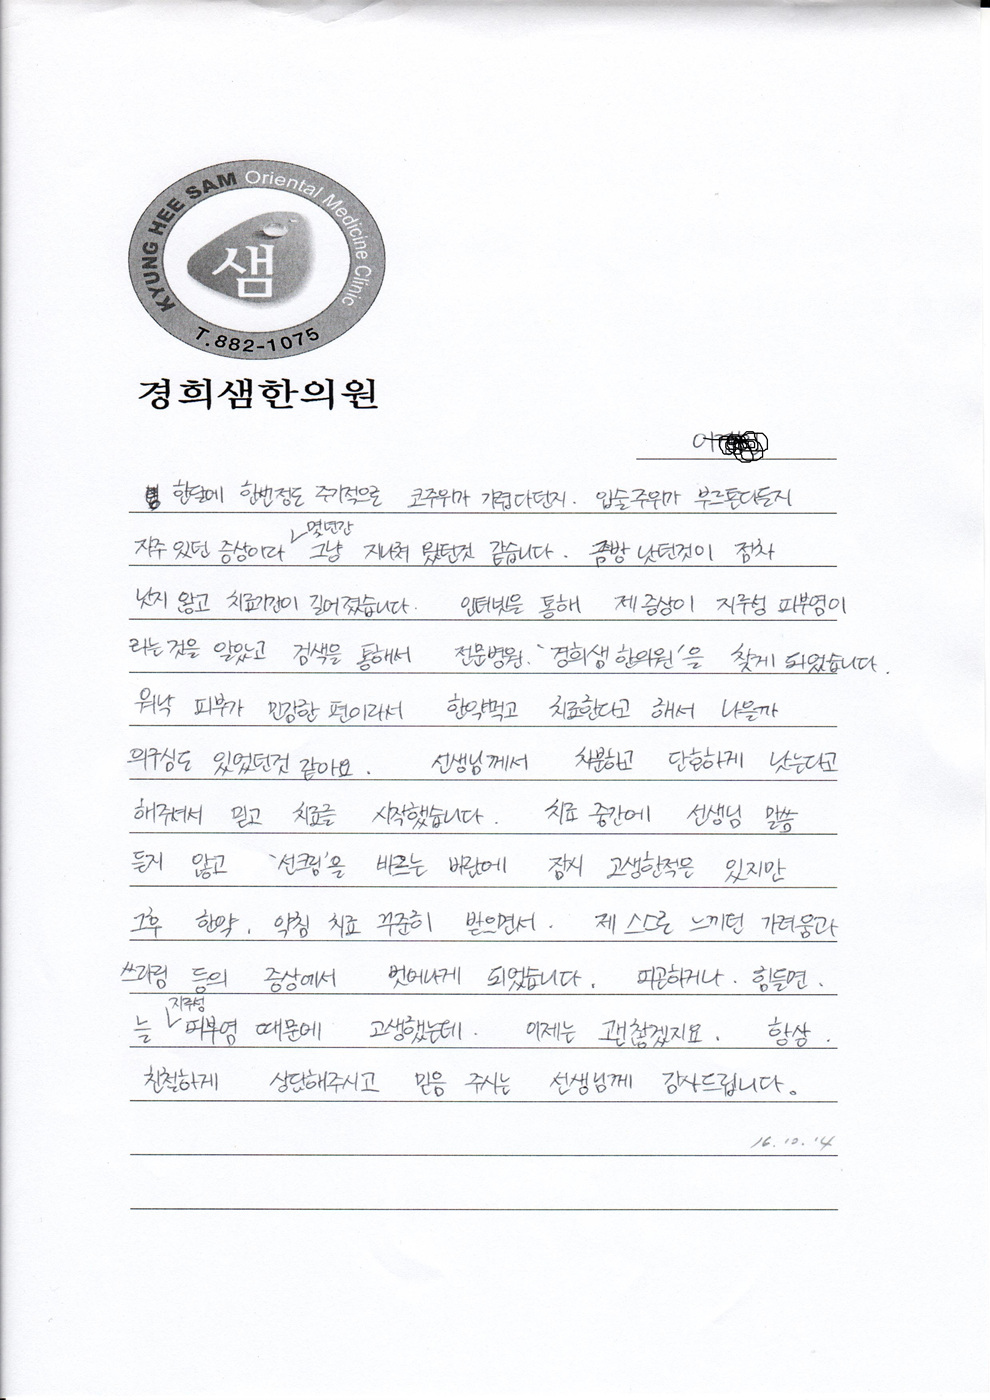 KYUNG HEE SAM Oriental Medicine Clinic
샘
T.882-1075
경희샘한의원
한달에 한번정도 주기적으로 코주위가 가렵다던지. 입술주위가 부르튼다든지
자주 있던 증상이라 몇년간 그냥 지나쳐 왔던것 같습니다. 금방 낫던것이 점차
낫지 않고 치료기간이 길어졌습니다. 인터넷을 통해 제 증상이 지루성 피부염이
라는것을 알았고 검색을 통해서 전문병원. '경희생한의원'을 찾게 되었습니다.
워낙 피부가 민감한 편이라서 한약먹고 치료한다고 해서 나을까
의구심도 있었던것 같아요. 선생님께서 차분하고 단호하게 낫는다고
해주셔서 믿고 치료를 시작했습니다. 치료 중간에 선생님 말씀
듣지 않고 '선크림'을 바르는 바람에 잠시 고생한적은 있지만
그후 한약, 약침 치료 꾸준히 받으면서. 제 스스로 느끼던 가려움과
쓰라림 등의 증상에서 벗어나게 되었습니다. 피곤하거나. 힘들면.
늘 지루성 피부염 때문에 고생했는데. 이제는 괜찮겠지요. 항상.
친절하게 상담해주시고 믿음 주시는 선생님께 감사드립니다.
16.10.14